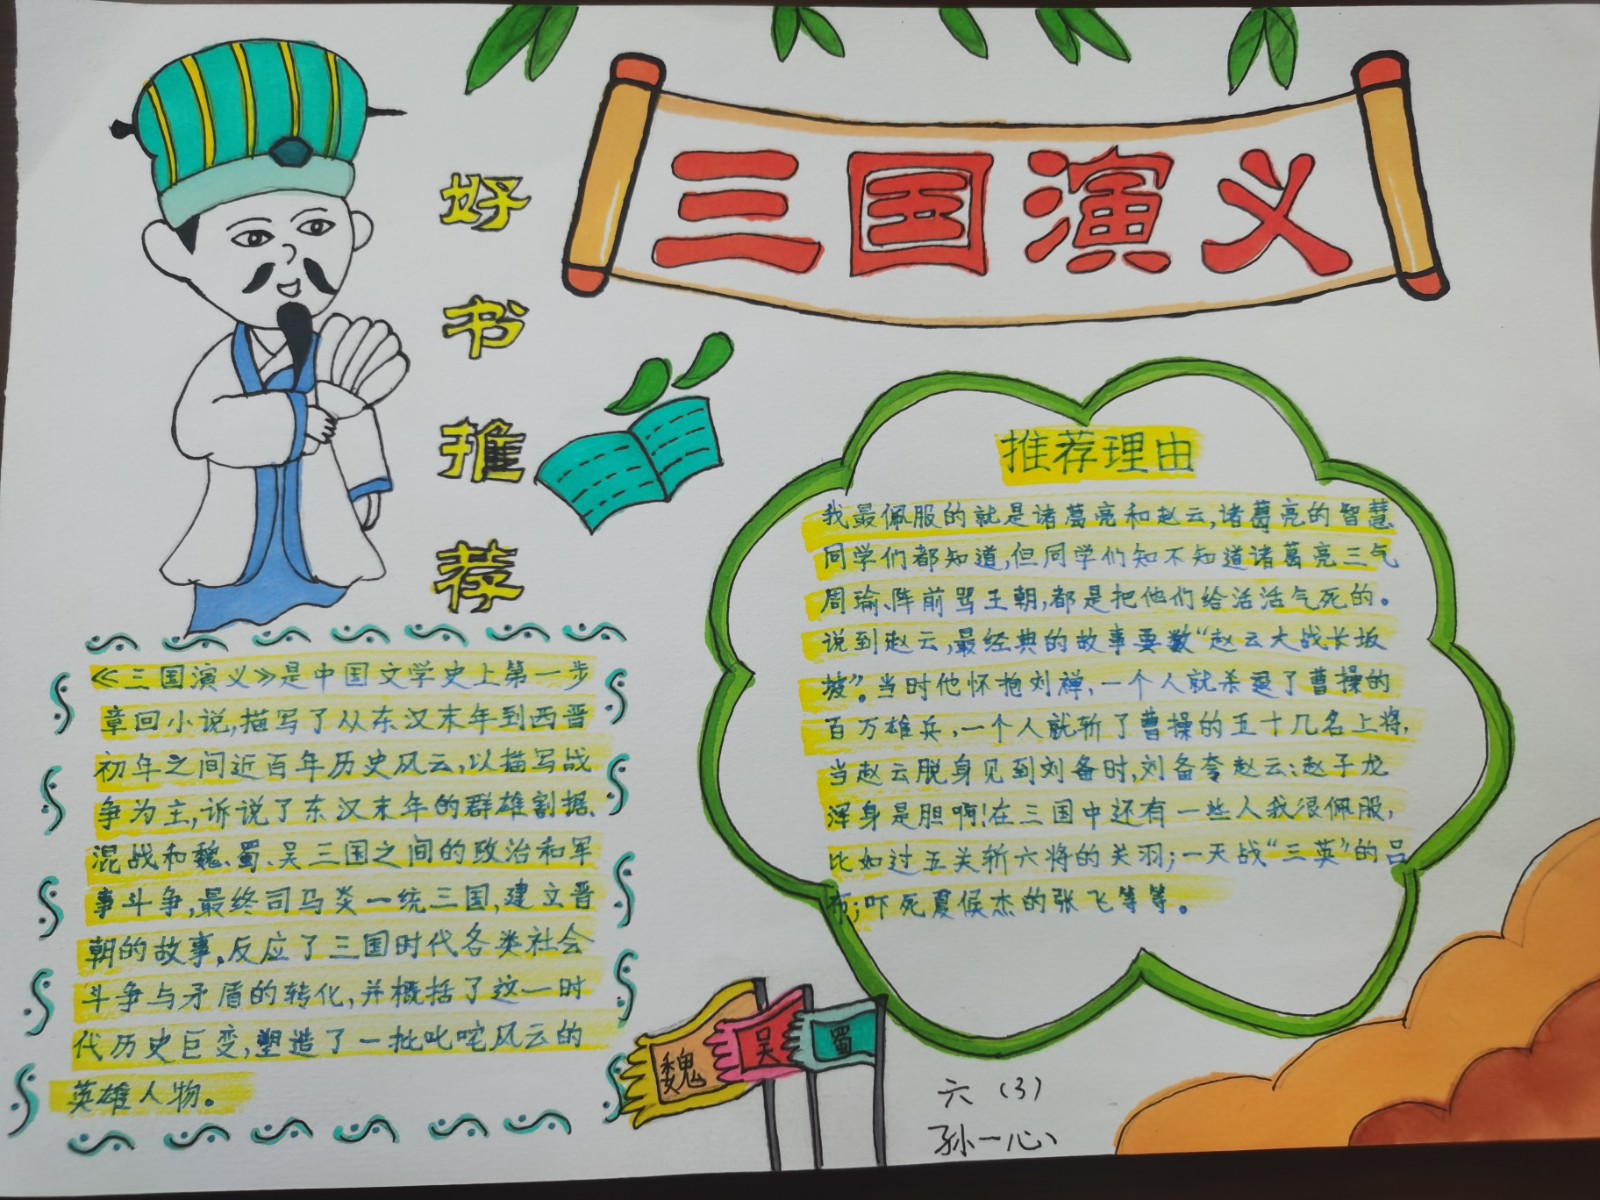 三国演义
好书推荐
《三国演义》是中国文学史上第一步
章回小说,描写了从东汉末年到西晋
初年之间近百年历史风云,以描写战
争为主,诉说了东汉末年的群雄割据、
混战和魏、蜀、吴三国之间的政治和军
事斗争,最终司马炎一统三国,建立晋
朝的故事,反应了三国时代各类社会
斗争与矛盾的转化,并概括了这一时
代历史巨变,塑造了一批叱咤风云的
英雄人物。
推荐理由
我最佩服的就是诸葛亮和赵云,诸葛亮的智慧
同学们都知道,但同学们知不知道诸葛亮三气
周瑜、阵前骂王朝,都是把他们给活活气死的。
说到赵云,最经典的故事要数“赵云大战长坂
坡”。当时他怀抱刘禅,一个人就杀退了曹操的
百万雄兵,一个人就斩了曹操的五十几名上将,
当赵云脱身见到刘备时,刘备夸赵云:赵子龙
浑身是胆啊!在三国中还有一些人我很佩服,
比如过五关斩六将的关羽;一天战“三英”的吕
布;吓死夏侯杰的张飞等等。
魏
吴
蜀
六(3)
孙一心